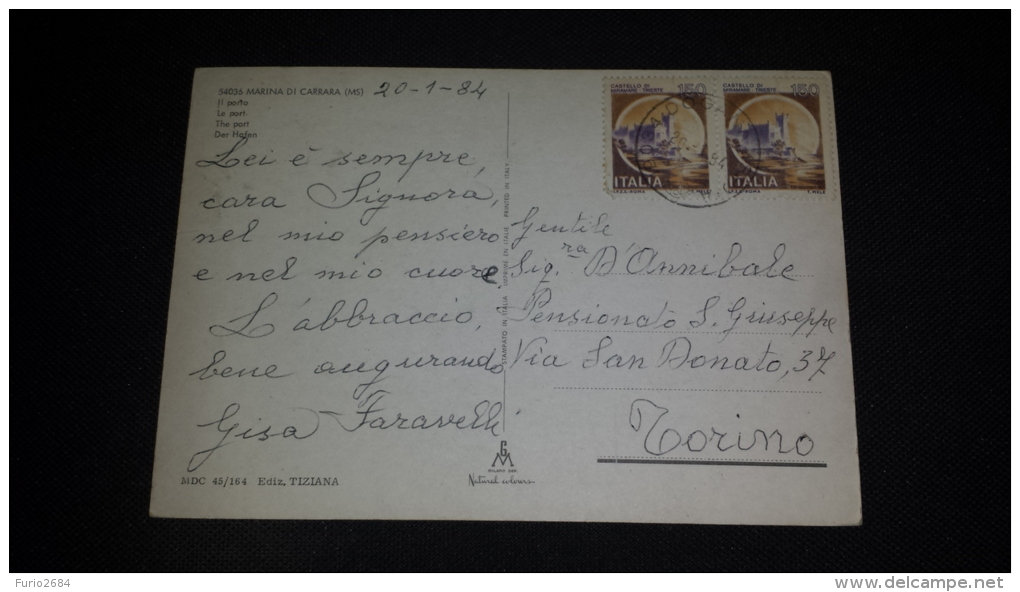 54036 MARINA DI CARRARA (MS) 20-1-84
Il porto
Le port
The port
Der Hafen
Lei è sempre,
cara Signora,
nel mio pensiero
e nel mio cuore.
L'abbraccio,
bene augurando
Gisa Faravelli
MDC 45/164 Ediz. TIZIANA
STAMPATO IN ITALIA IMPRIMÉ EN ITALIE PRINTED IN ITALY
GM
Natural colours
CASTELLO DI
MIRAMARE TRIESTE
150
ITALIA
I.P.Z.S. ROMA
CASTELLO DI
MIRAMARE TRIESTE
150
ITALIA
I.P.Z.S. ROMA T. MELE
Gentile
Sig.ra D'Annibale
Pensionato S. Giuseppe
Via San Donato, 37
Torino
Furio2684
www.delcampe.net